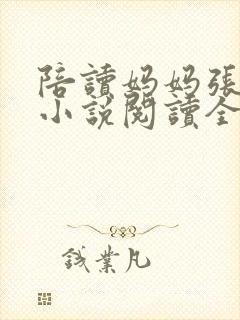 陪讀媽媽張
小說閱讀全
錢業凡